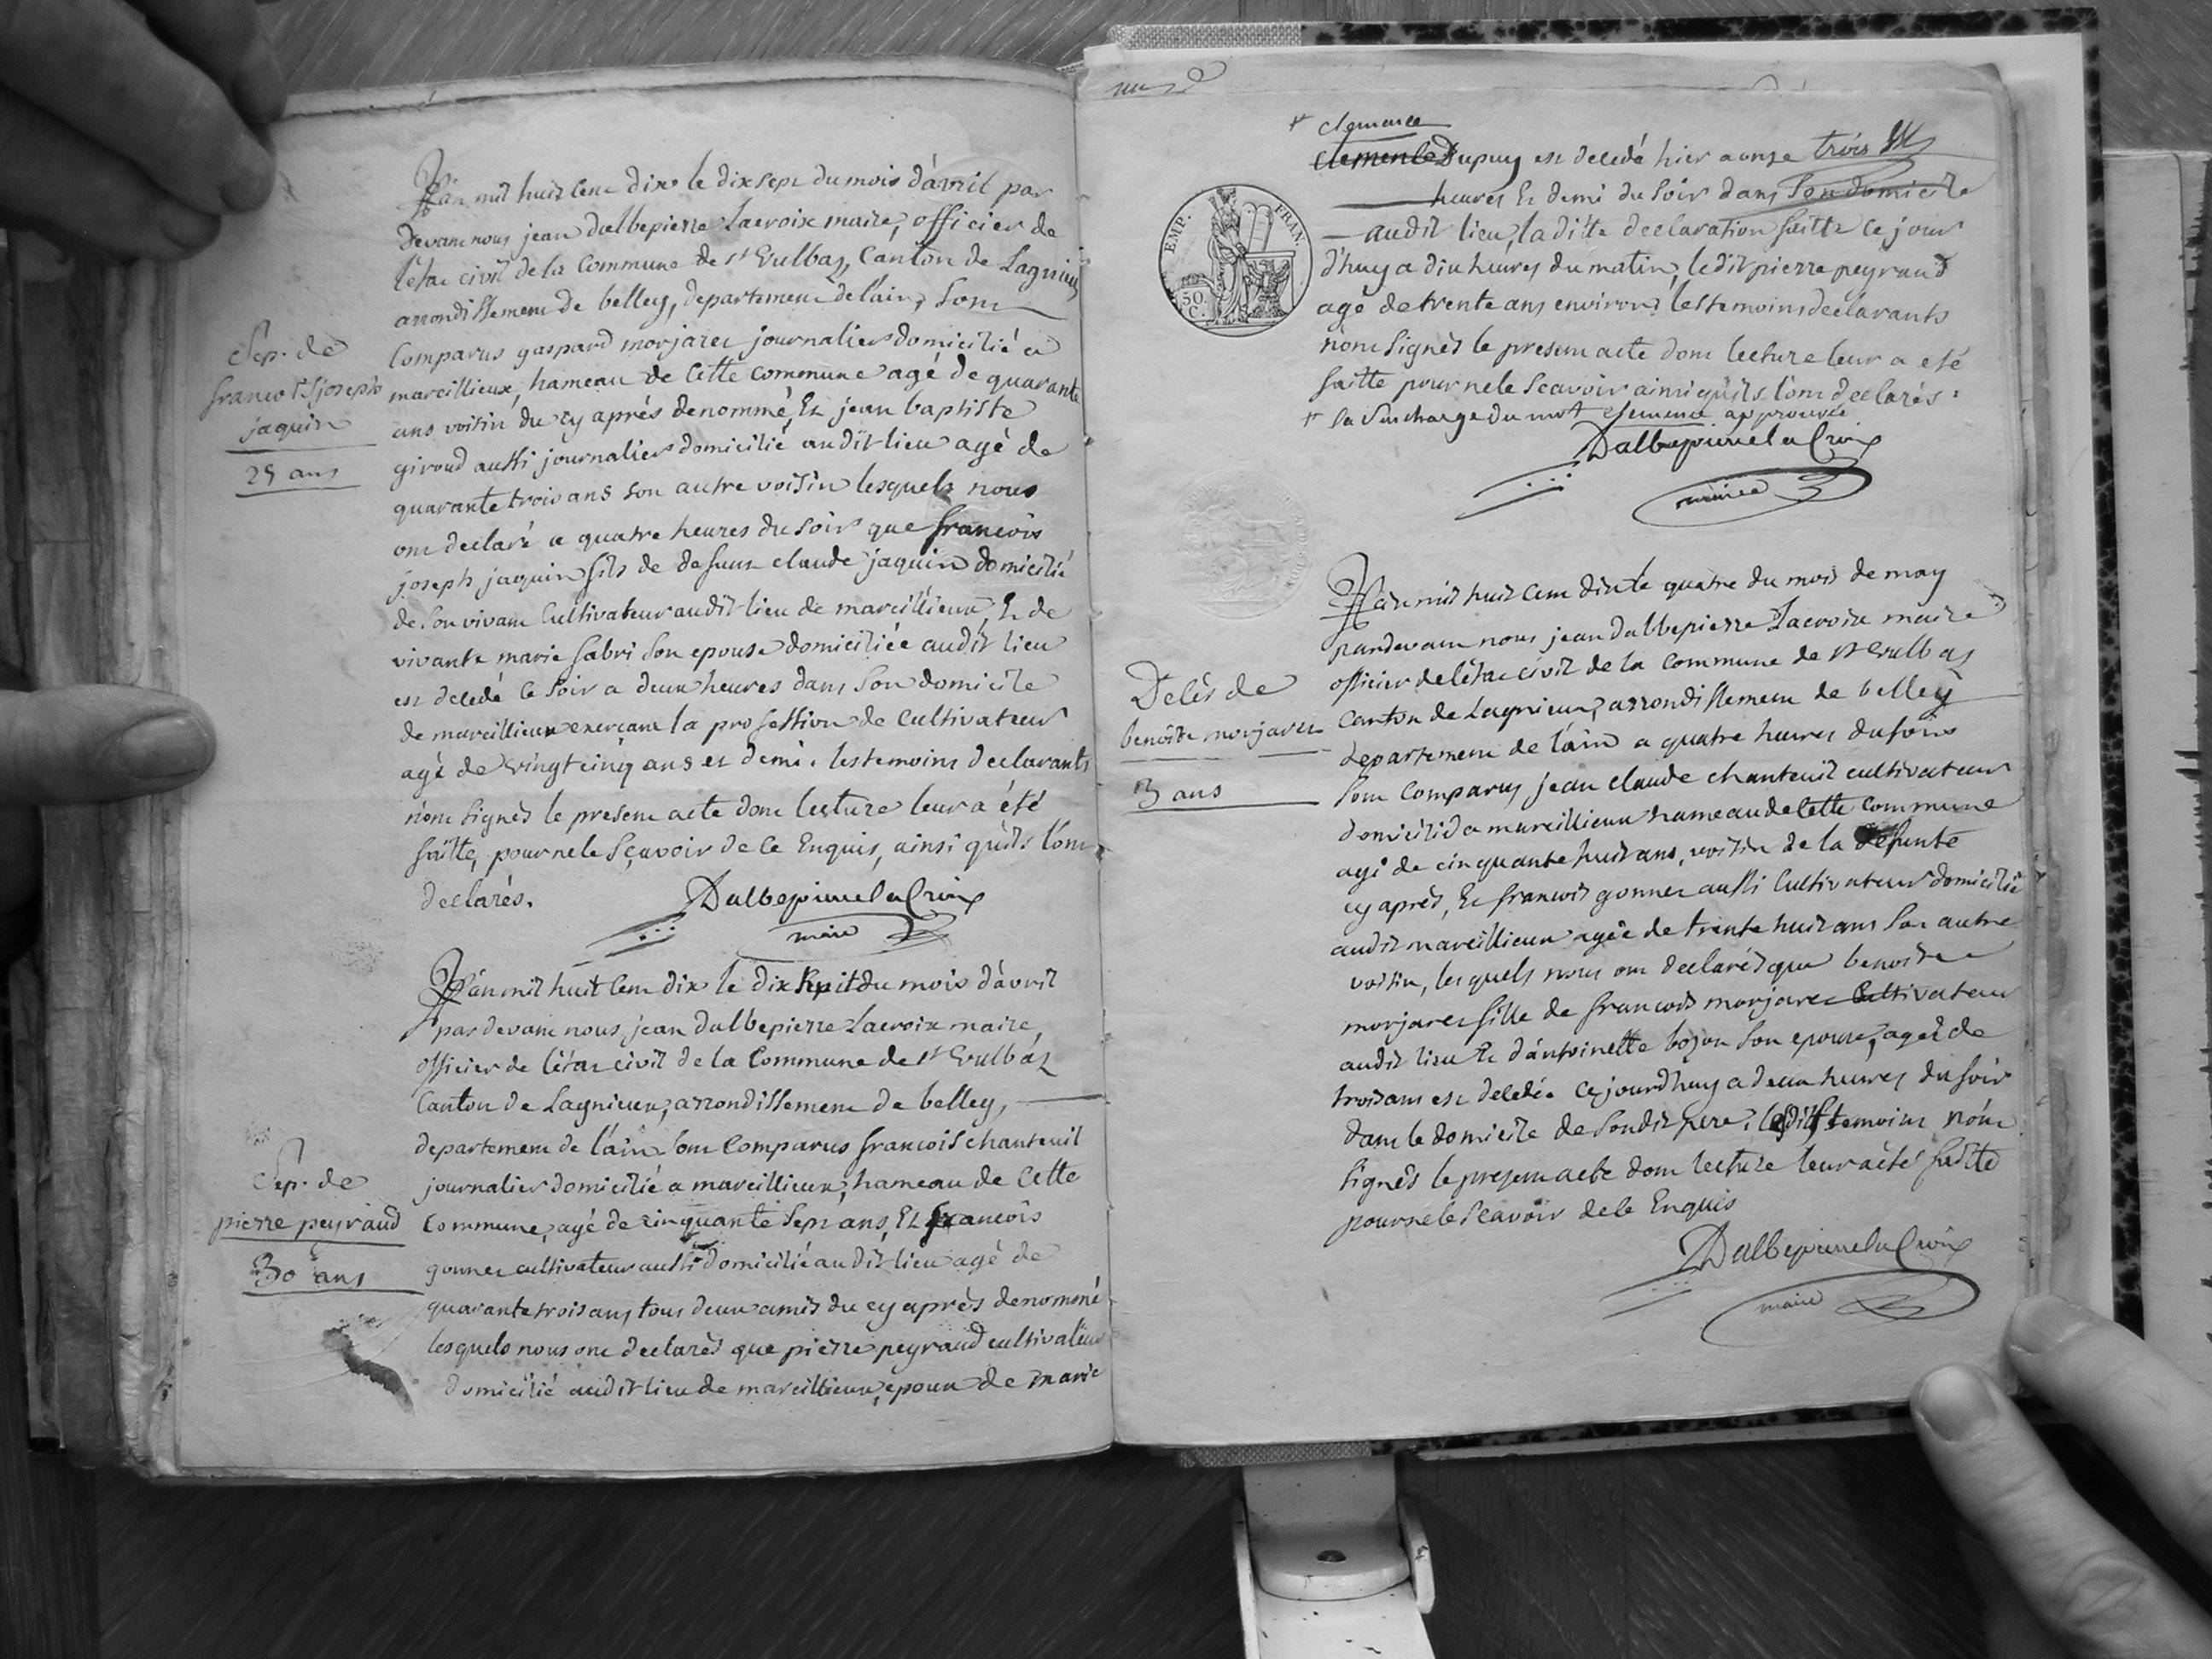 Sep. de
francois joseph
jaquin
25 ans
L'an mil huit cent dix le dix sept du mois d'avril par
devant nous jean dalbepierre Lacroix maire, officier de
l'etat civil de la Commune de St Vulbaz, Canton de Lagnieu
arrondissement de belley, departement de l'ain, sont
Comparus gaspard morjaret journalier domicilié a
marcillieux, hameau de cette commune agé de quarante
ans voisin du cy aprés denommé, Et jean baptiste
giroud aussi journalier domicilié audit lieu agé de
quarante trois ans son autre voisin lesquels nous
ont declaré a quatre heures du soir que francois
joseph jaquin fils de defunt claude jaquin domicilié
de son vivant Cultivateur audit lieu de marcillieux, Et de
vivante marie fabri son epouse domiciliée audit lieu
est decedé ce soir a deux heures dans son domicile
de marcillieux exercant la profession de Cultivateur
agé de vingt cinq ans et demi. les temoins declarants
n'ont signés le present acte dont lecture leur a été
faitte, pour ne le sçavoir de ce Enquis, ainsi qu'ils l'ont
declarés.
Dalbepierre la Croix
maire
Sep. de
pierre peyraud
30 ans
L'an mil huit cent dix le dix huit du mois d'avril
par devant nous, jean dalbepierre Lacroix maire,
officier de l'etat civil de la Commune de St Vulbaz
Canton de Lagnieu, arrondissement de belley,
departement de l'ain sont Comparus francois chanteuil
journalier domicilié a marcillieux, hameau de Cette
Commune, agé de cinquante sept ans, Et francois
gonnet cultivateur aussi domicilié audit lieu agé de
quarante trois ans tous deux amis du cy aprés denommé
lesquels nous ont declarés que pierre peyraud cultivateur
domicilié audit lieu de marcillieux, epoux de marie
+ clemence
Clemence Dupuy est decedé hier a onze trois
heures Et demi du soir dans son domicile
audit lieu, la ditte declaration faitte ce jour
d'huy a dix heures du matin, le dit pierre peyraud
agé de trente ans environ, les temoins declarants
n'ont signés le present acte dont lecture leur a eté
faitte pour ne le scavoir ainsi qu'ils l'ont declarés.
+ la surcharge du mot clemence approuvée
Dalbepierre la Croix
maire
EMP. FRAN.
50. C.
Decès de
benoite morjaret
3 ans
L'an mil huit cent dix le quatre du mois de may
pardevant nous jean dalbepierre Lacroix maire
officier de l'etat civil de la Commune de St Vulbas
Canton de Lagnieux, arrondissement de belley
departement de l'ain a quatre heures du soir
sont Comparus jean claude chanteuil cultivateur
domicilié a marcillieux hameau de cette Commune
agé de cinquante huit ans, voisin de la defunte
cy aprés, Et francois gonnet aussi Cultivateur domicilié
audit marcillieux agée de trente huit ans son autre
voisin, lesquels nous ont declarés que benoite
morjaret fille de francois morjaret Cultivateur
audit lieu Et d'antoinette bojon son epouse, ageé de
trois ans est decedée ce jourd'huy a deux heures du soir
dans le domicile de son dit pere, lesdits temoins n'ont
signés le present acte dont lecture leur a été faitte
pour ne le scavoir de ce Enquis
Dalbepierre la Croix
maire